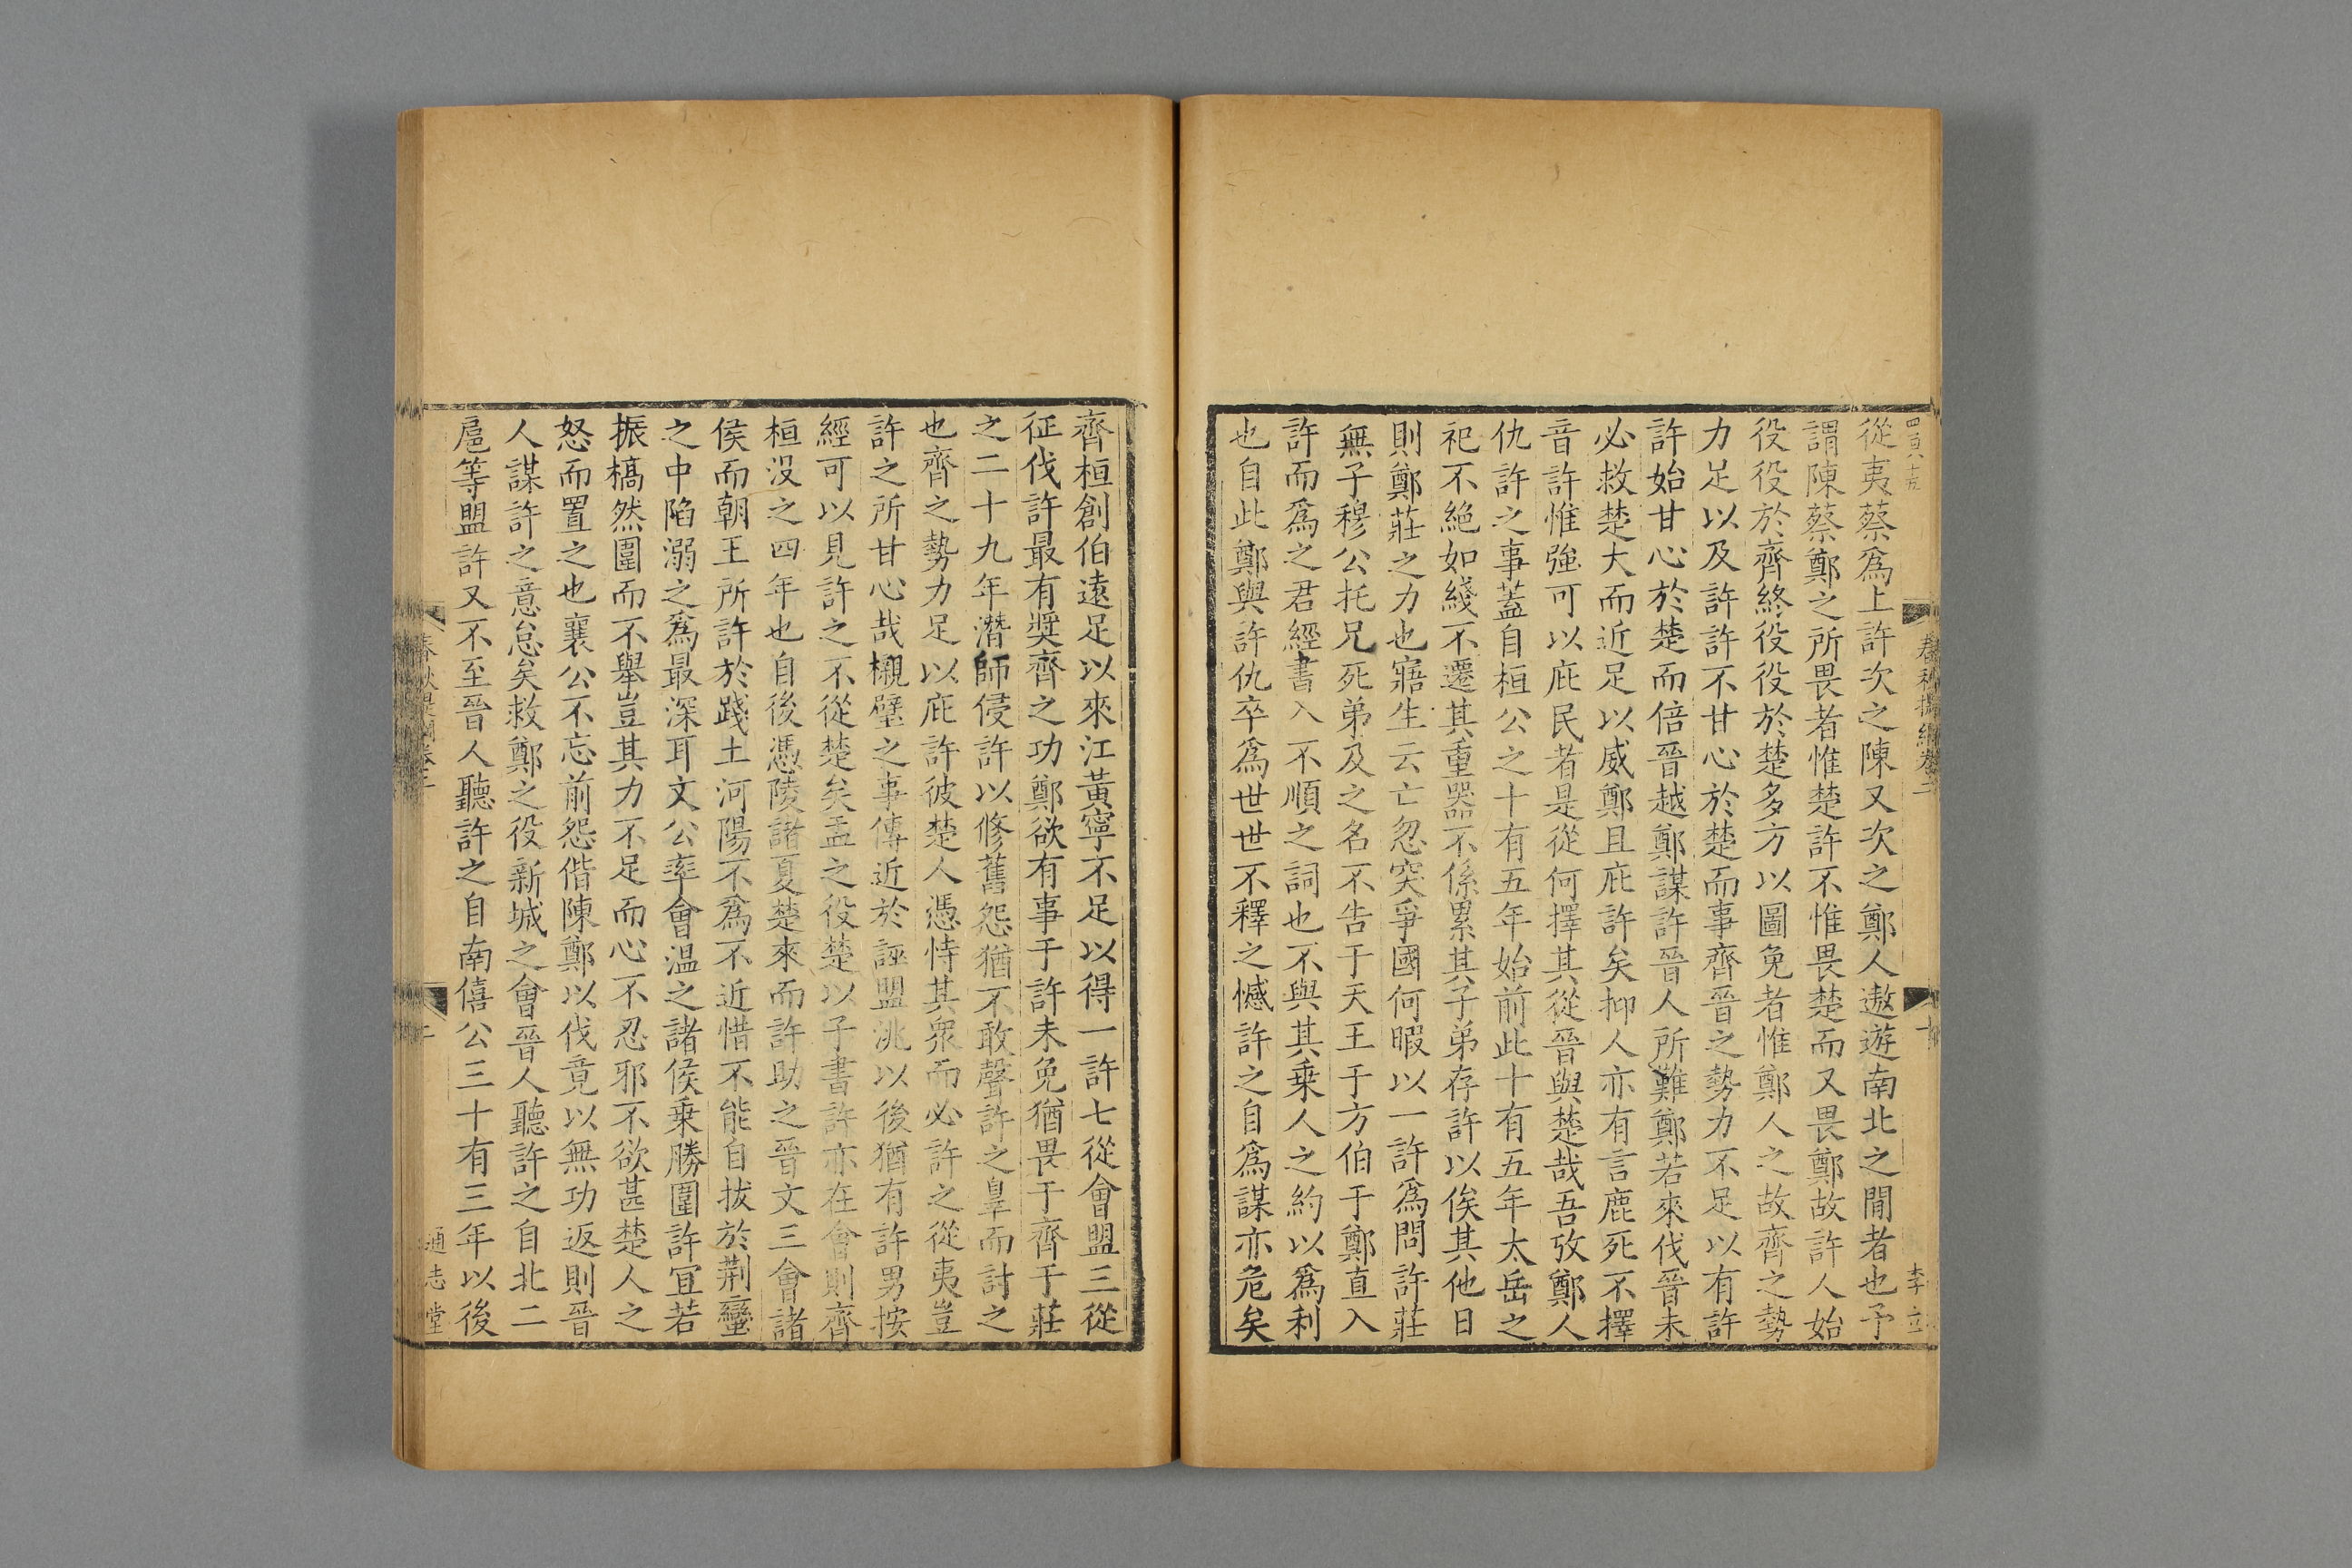 從夷蔡爲上許次之陳又次之鄭人遨遊南北之閒者也予
謂陳蔡鄭之所畏者惟楚許不惟畏楚而又畏鄭故許人始
役役於齊終役役於楚多方以圖免者惟鄭人之故齊之勢
力足以及許許不甘心於楚而事齊晉之勢力不足以有許
許始甘心於楚而倍晉越鄭謀許晉人所難鄭若來伐晉未
必救楚大而近足以威鄭且庇許矣抑人亦有言鹿死不擇
音許惟強可以庇民者是從何擇其從晉與楚哉吾攷鄭人
仇許之事蓋自桓公之十有五年始前此十有五年太岳之
祀不絕如綫不遷其重器不係累其子弟存許以俟其他日
則鄭莊之力也寤生云亡忽突爭國何暇以一許爲問許莊
無子穆公托兄死弟及之名不告于天王于方伯于鄭直入
許而爲之君經書入不順之詞也不與其乗人之約以爲利
也自此鄭與許仇卒爲世世不釋之憾許之自爲謀亦危矣
李立
齊桓創伯遠足以來江黃寧不足以得一許七從會盟三從
征伐許最有奬齊之功鄭欲有事于許未免猶畏于齊于莊
之二十九年潛師侵許以修舊怨猶不敢聲許之辠而討之
也齊之勢力足以庇許彼楚人憑恃其衆而必許之從夷豈
許之所甘心哉櫬璧之事傳近於誣盟洮以後猶有許男按
經可以見許之不從楚矣盂之役楚以子書許亦在會則齊
桓没之四年也自後憑陵諸夏楚來而許助之晉文三會諸
侯而朝王所許於踐土河陽不爲不近惜不能自拔於荆蠻
之中陷溺之爲最深耳文公率會温之諸侯乗勝圍許宜若
振槁然圍而不舉豈其力不足而心不忍邪不欲甚楚人之
怒而置之也襄公不忘前怨偕陳鄭以伐竟以無功返則晉
人謀許之意怠矣救鄭之役新城之會晉人聽許之自北二
扈等盟許又不至晉人聽許之自南僖公三十有三年以後
通志堂